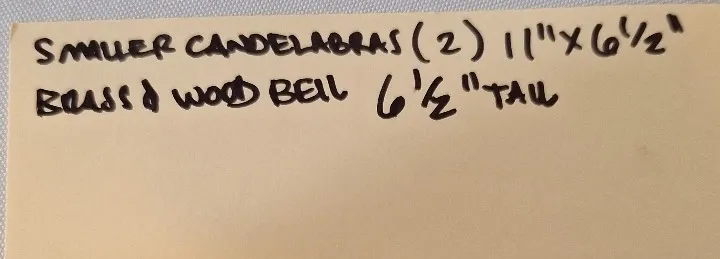 SMALLER CANDELABRAS (2) 11" X 6 1/2"
BRASS & WOOD BELL 6 1/2" TALL